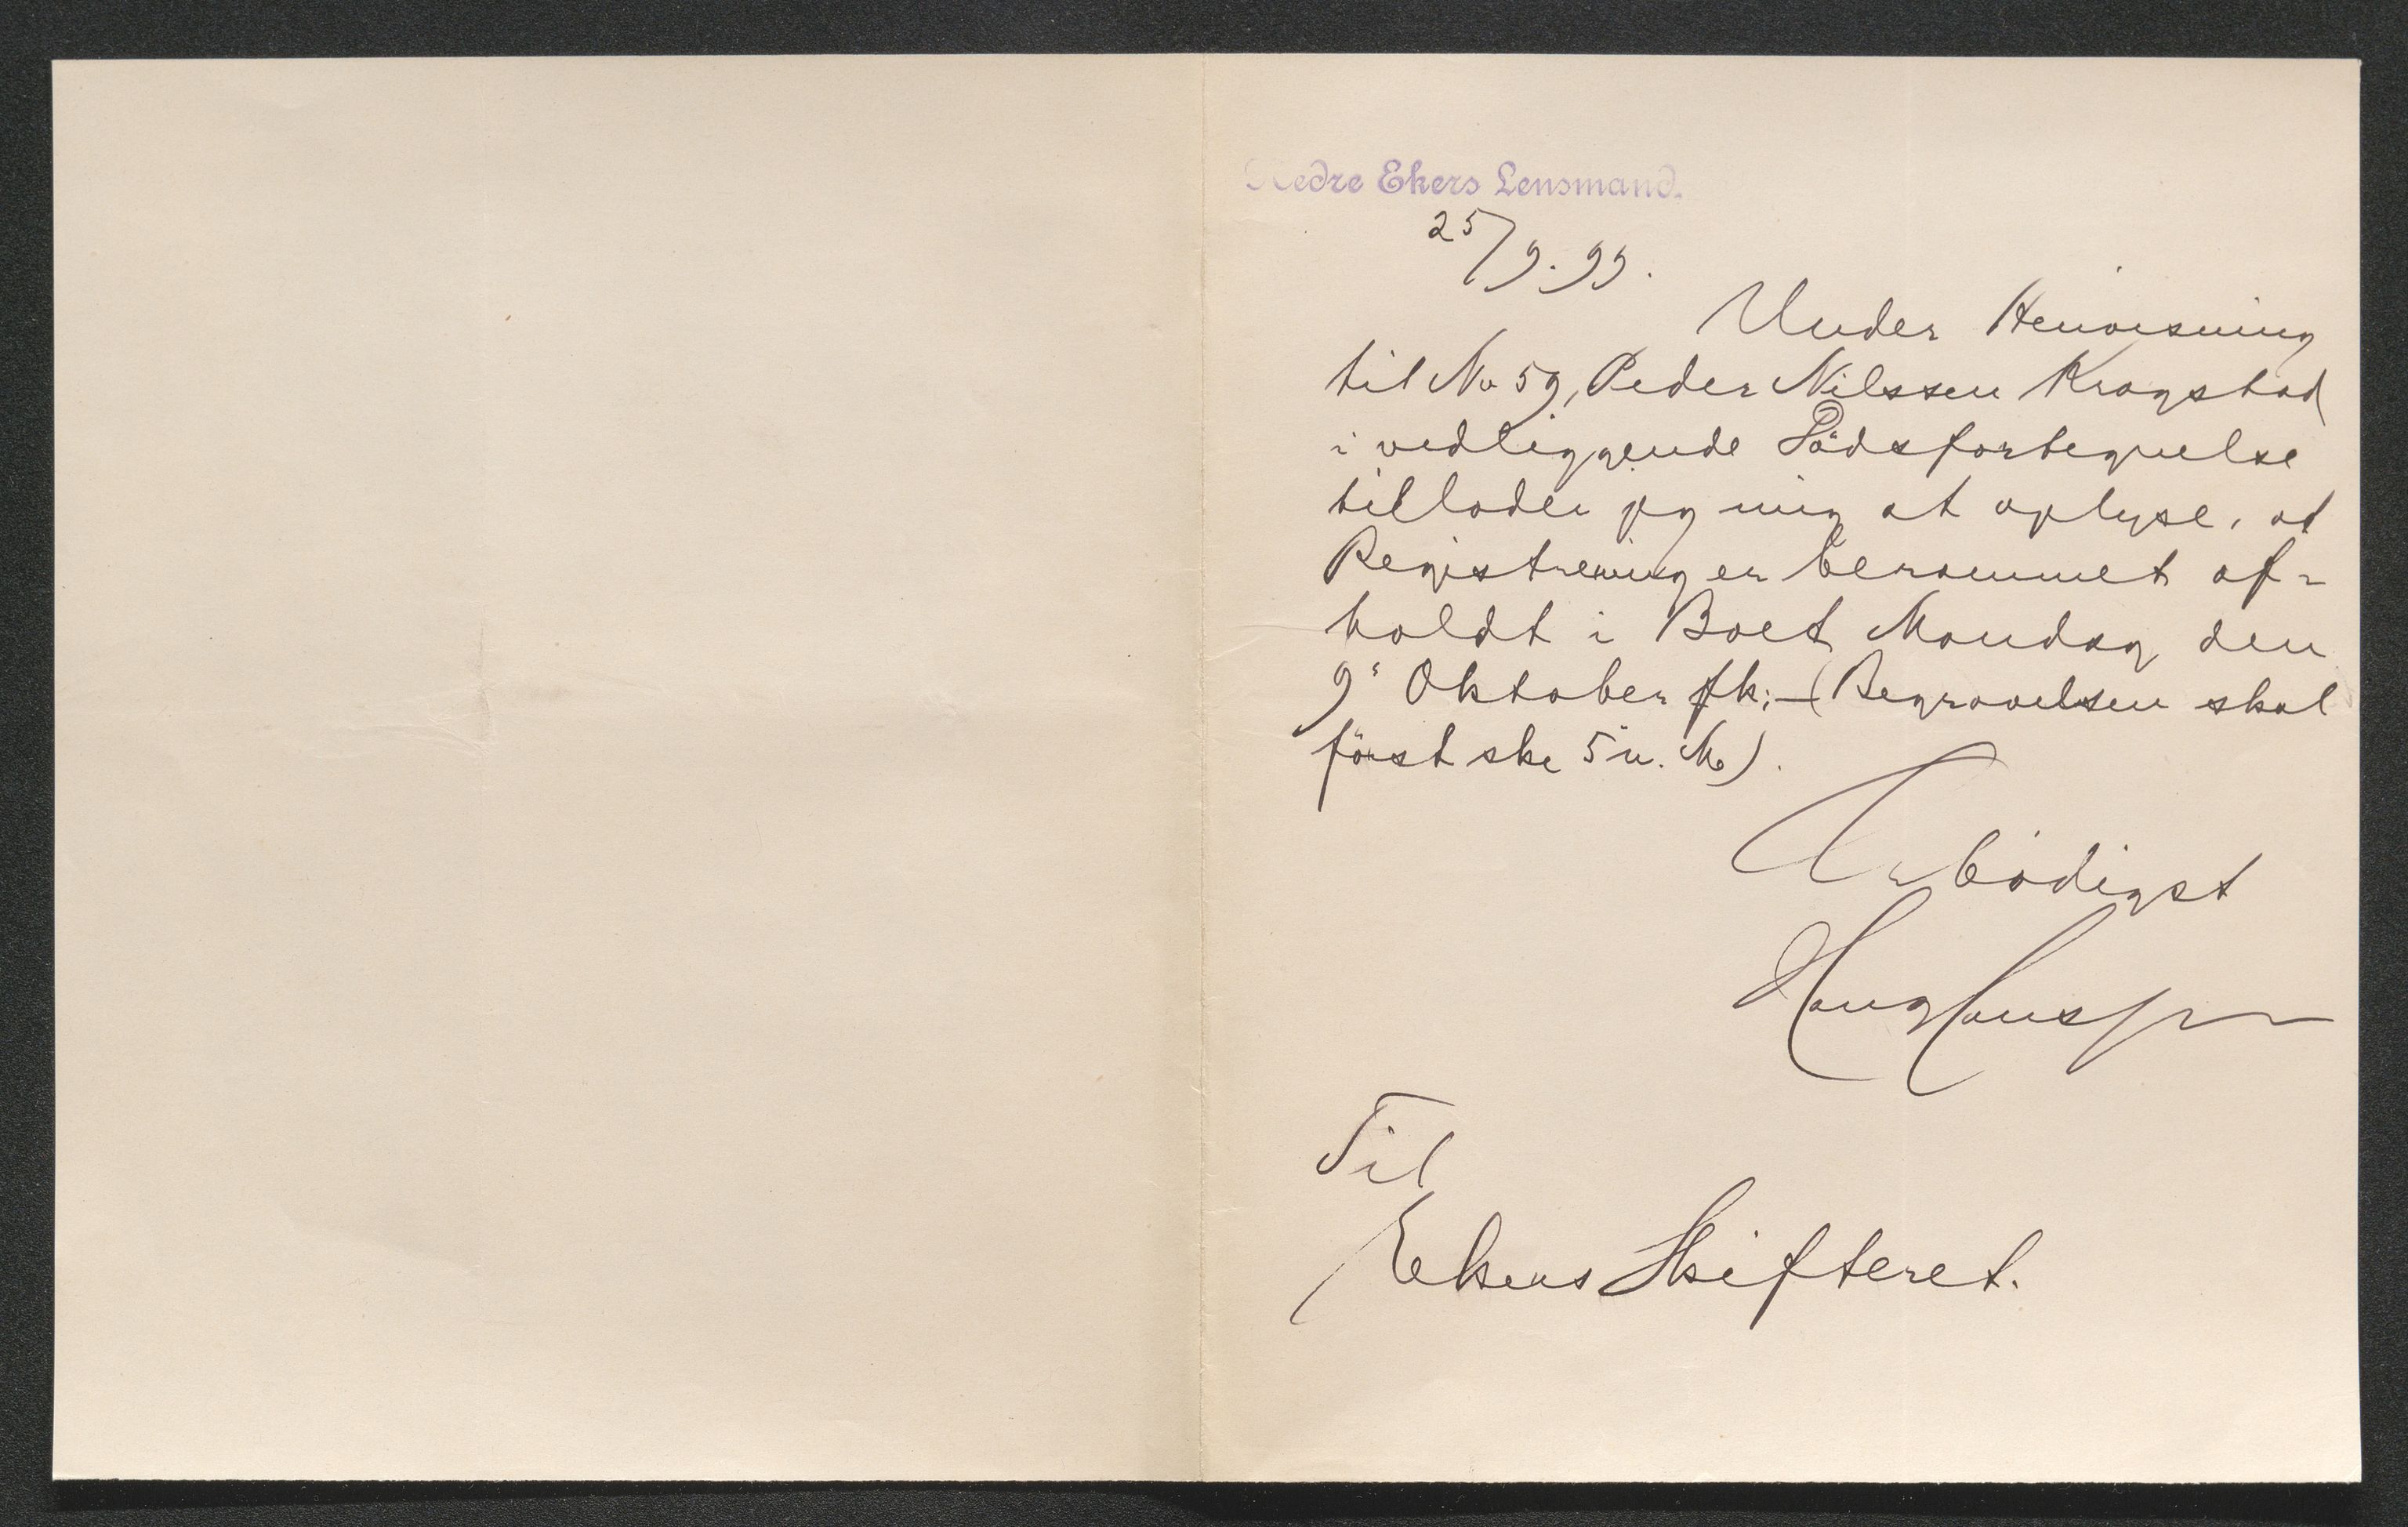 Nedre Ekers Lensmand.
25/9.99.
Under Henvisning
til No 59, Peder Nilssen Krogstad
i vedliggende Dödsfortegnelse
tillader jeg mig at oplyse, at
Registrering er berammet af-
holdt i Boet Mandag den
9' Oktober fk; – (Begravelsen skal
först ske 5 n. M).
Ærbödigst
Til
Ekers Skifteret.